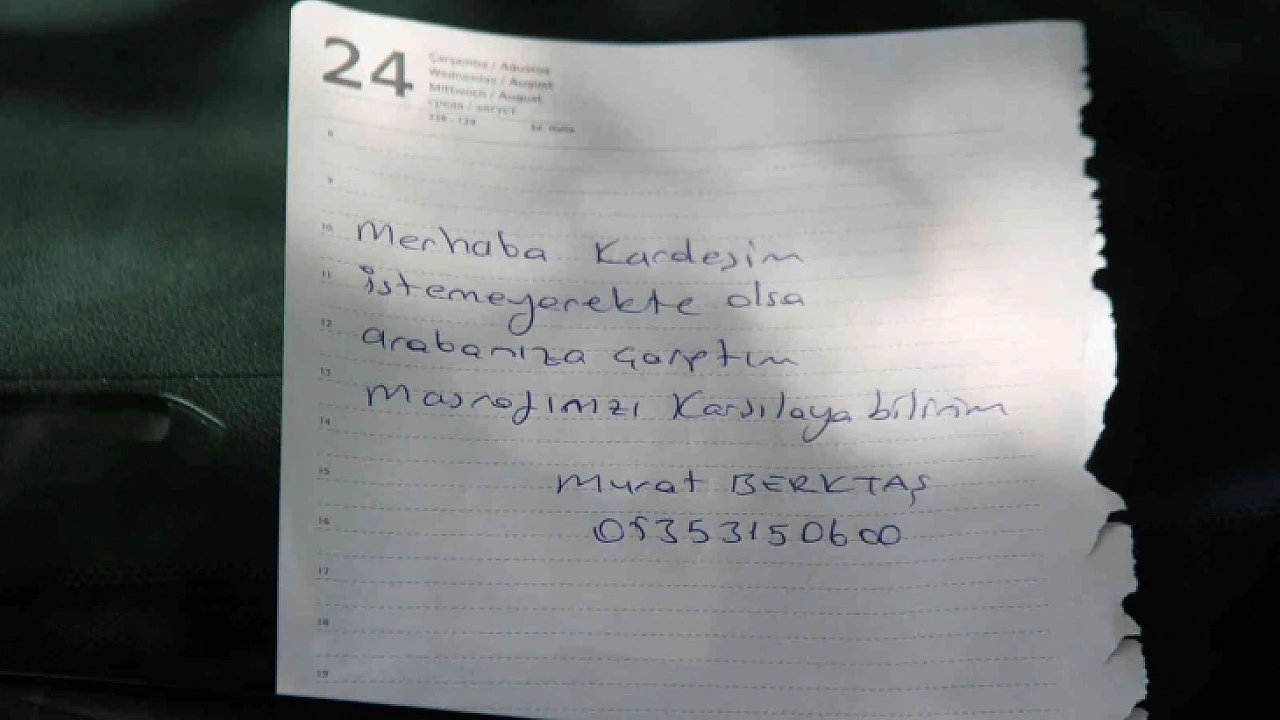 24
Çarşamba / Ağustos
Wednesday / August
Mittwoch / August
среда / август
236 - 129
8
9
10 Merhaba Kardeşim
11 istemeyerekte olsa
12 arabanıza çarptım
13 Masrafınızı Karşılaya bilirim
14
15 Murat BERKTAŞ
16 05353150600
17
18
19